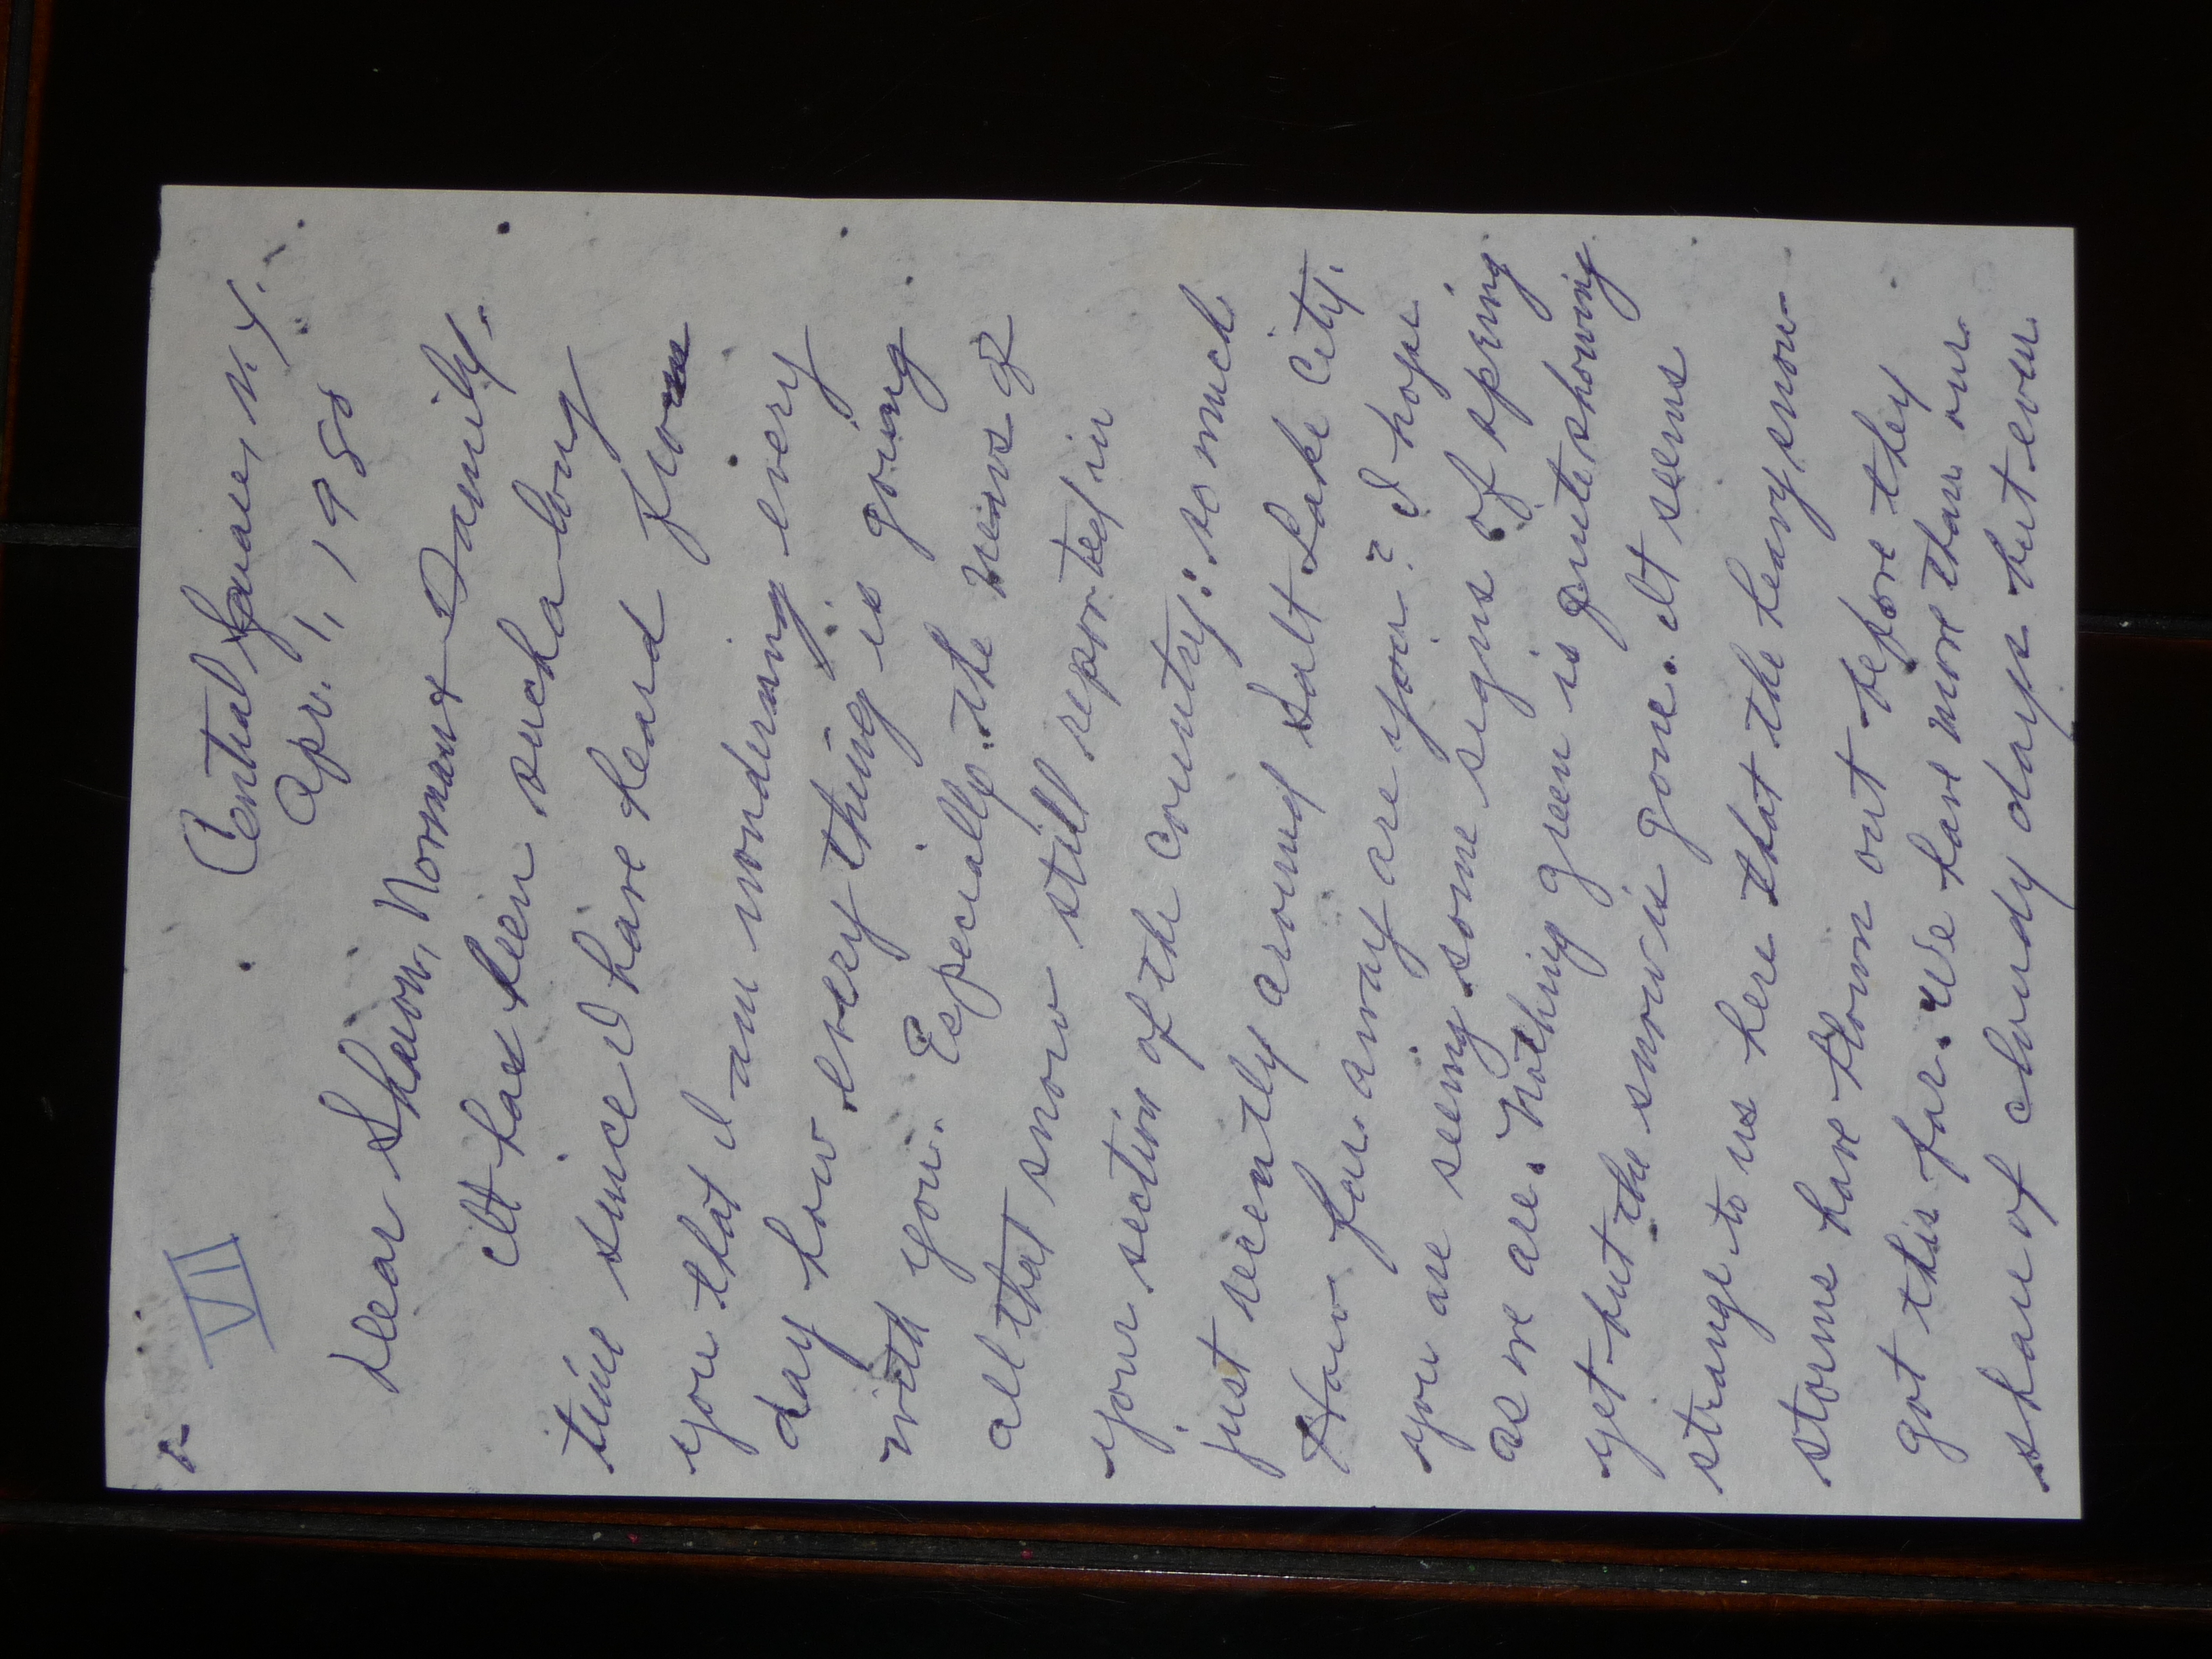 VII
Central Square, N.Y.
Apr. 1, 1980
Dear Sharon, Norman & Family,
It has been such a long
time since I have heard from
you that I am wondering every
day how every thing is going
with you. Especially the news of
all that snow still reported in
your section of the country: so much
just recently around Salt Lake City.
How far away are you? I hope
you are seeing some signs of spring
as we are. Nothing green is quite showing
yet but the snow is gone. It seems
strange to us here that the heavy snow
storms have blown out before they
got this far. We have more than our
share of cloudy days but even